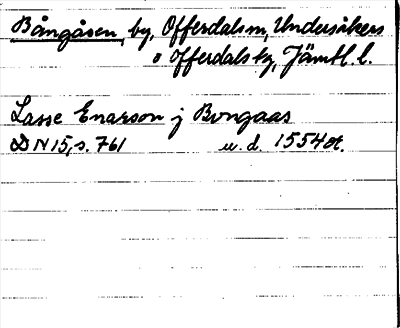 Bångåsen, by, Offerdals sn, Undersåkers
o Offerdals tg, Jämtl. l.
Lasse Enarson j Bongaas
DN 15, s. 761 u. d. 1554